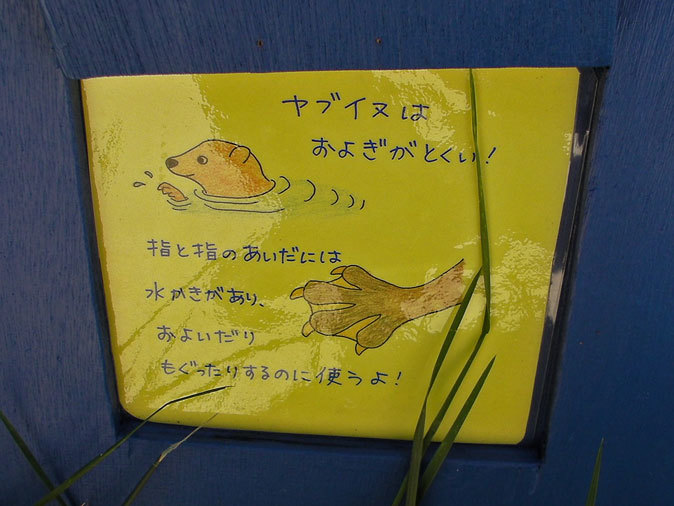 ヤブイヌは
およぎがとくい!
指と指のあいだには
水かきがあり、
およいだり
もぐったりするのに使うよ!